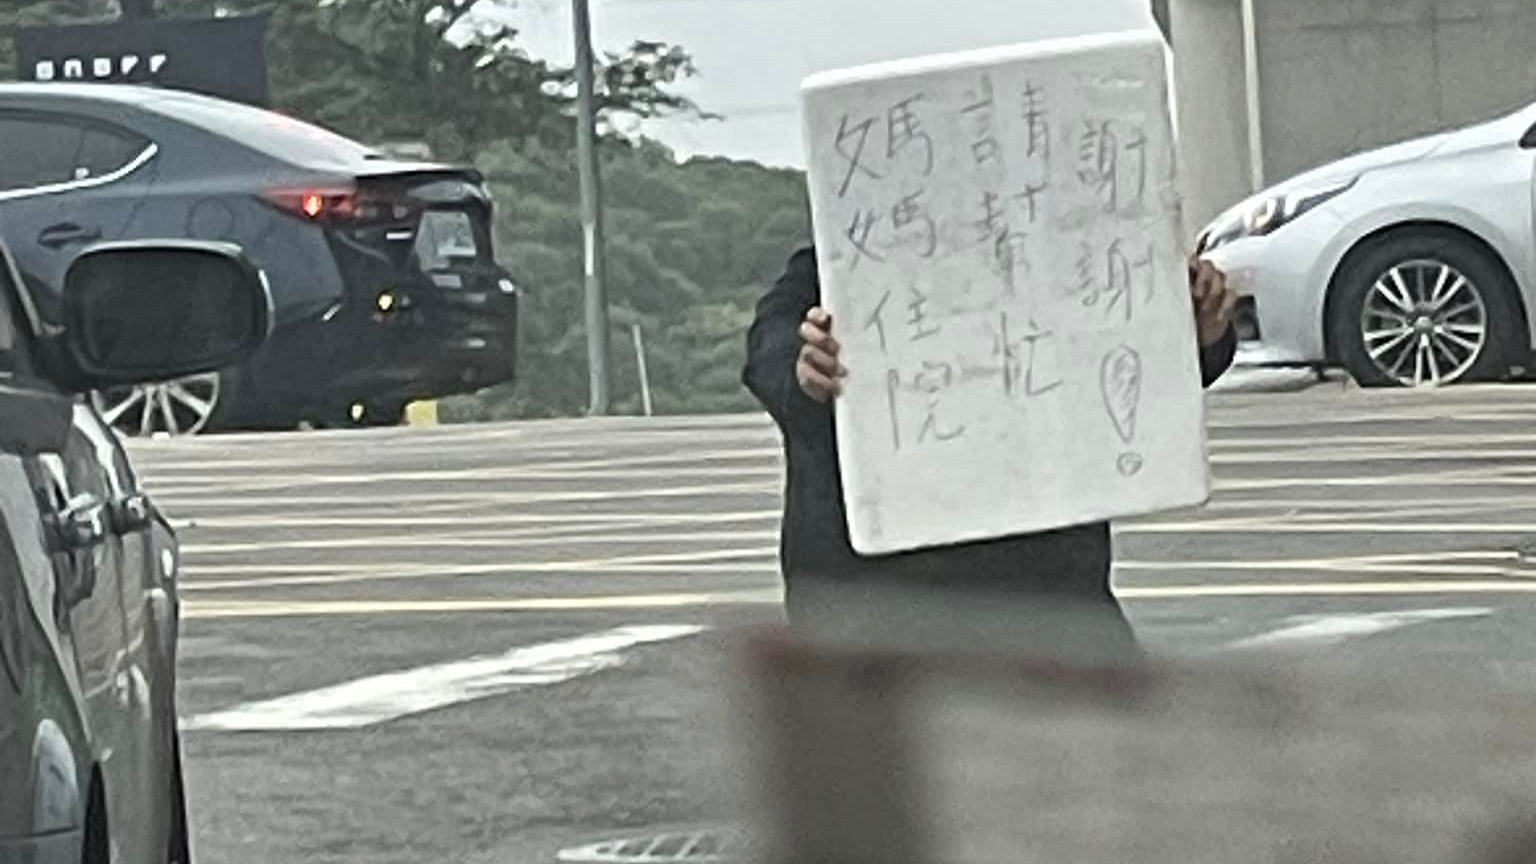 媽媽住院
請幫忙
謝謝!